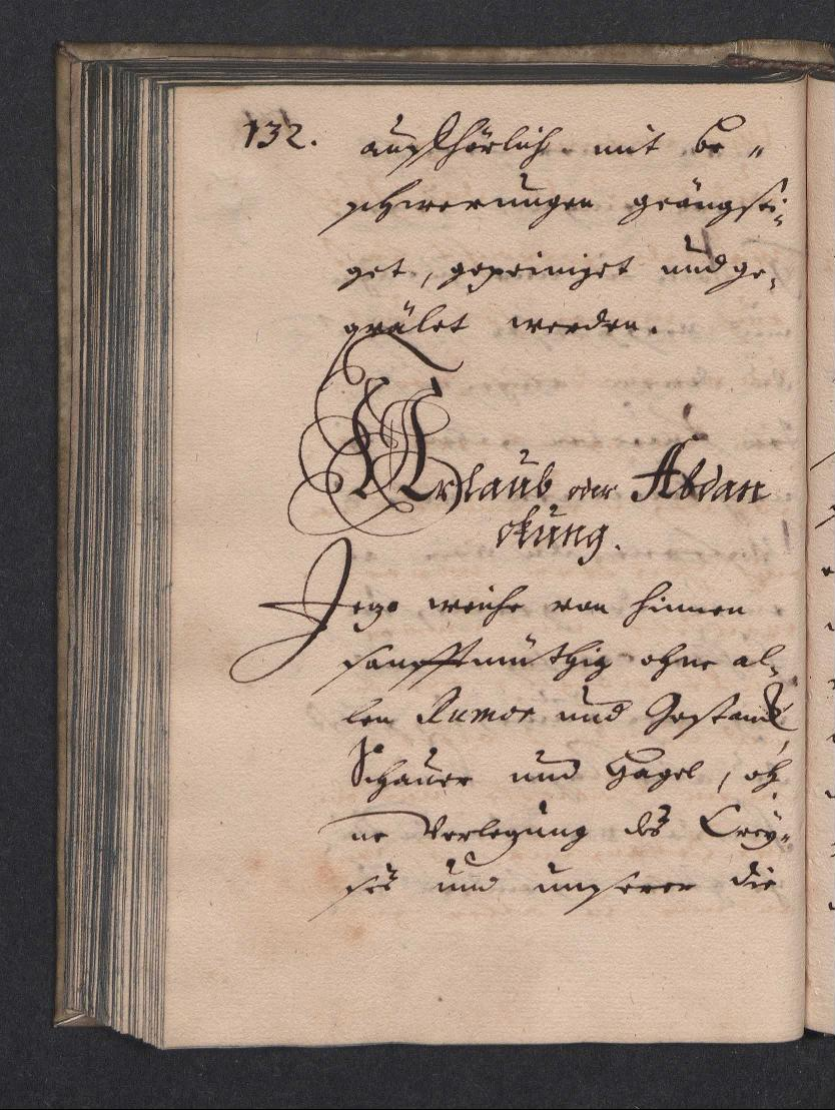 132. aufhörlich mit be„
schwerungen geängsti„
get, gepeiniget und ge„
quälet werden.
Urlaub oder Abdan
ckung.
Jezo weiche von hinnen
sanfftmüthig ohne al„
len Rumor und Gestanck,
Schauer und Hagel, oh„
ne Verlezung des Crey„
ses und unserer die